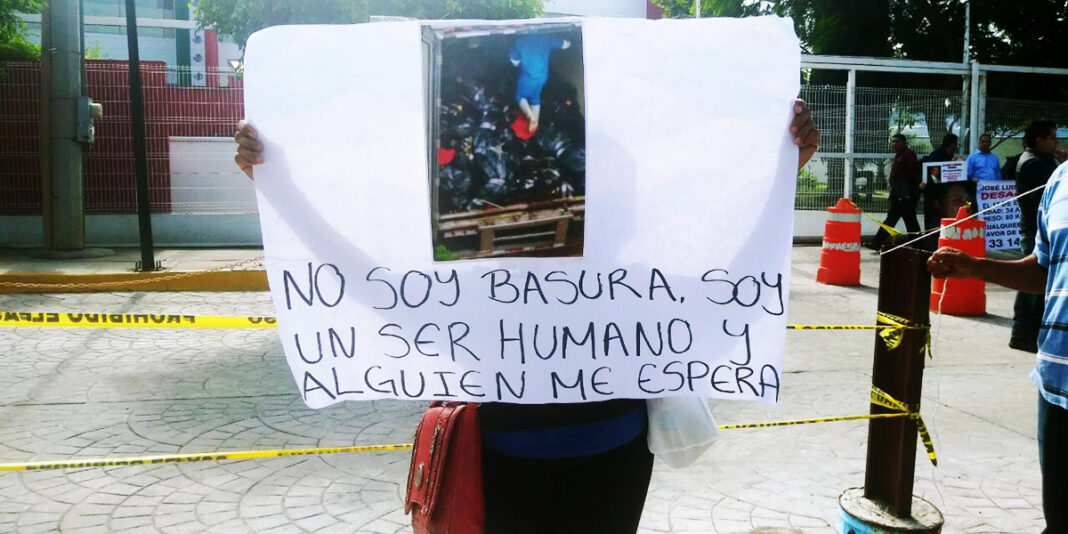 NO SOY BASURA, SOY
UN SER HUMANO Y
ALGUIEN ME ESPERA
PROHIBIDO EL PAS
JOSE LUI
DESA
EDAD: 34 A
PESO: 80 K
CUALQUIE
FAVOR DE
33 14